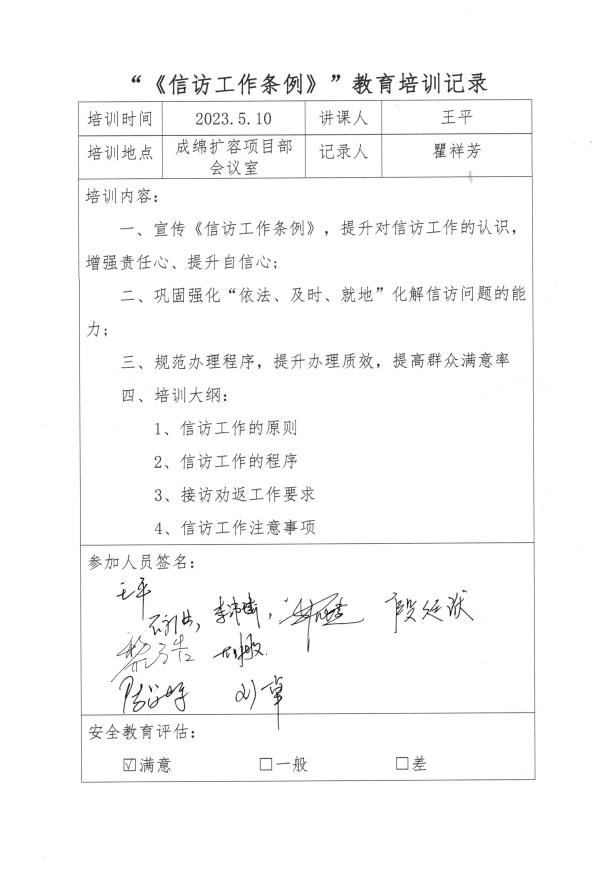 “《信访工作条例》”教育培训记录
培训时间 2023.5.10 讲课人 王平
培训地点 成绵扩容项目部会议室 记录人 瞿祥芳
培训内容：
一、宣传《信访工作条例》，提升对信访工作的认识，
增强责任心、提升自信心;
二、巩固强化“依法、及时、就地”化解信访问题的能
力;
三、规范办理程序，提升办理质效，提高群众满意率
四、培训大纲:
1、信访工作的原则
2、信访工作的程序
3、接访劝返工作要求
4、信访工作注意事项
参加人员签名:
王平
段廷跃
刘章
安全教育评估:
☑满意 □一般 □差